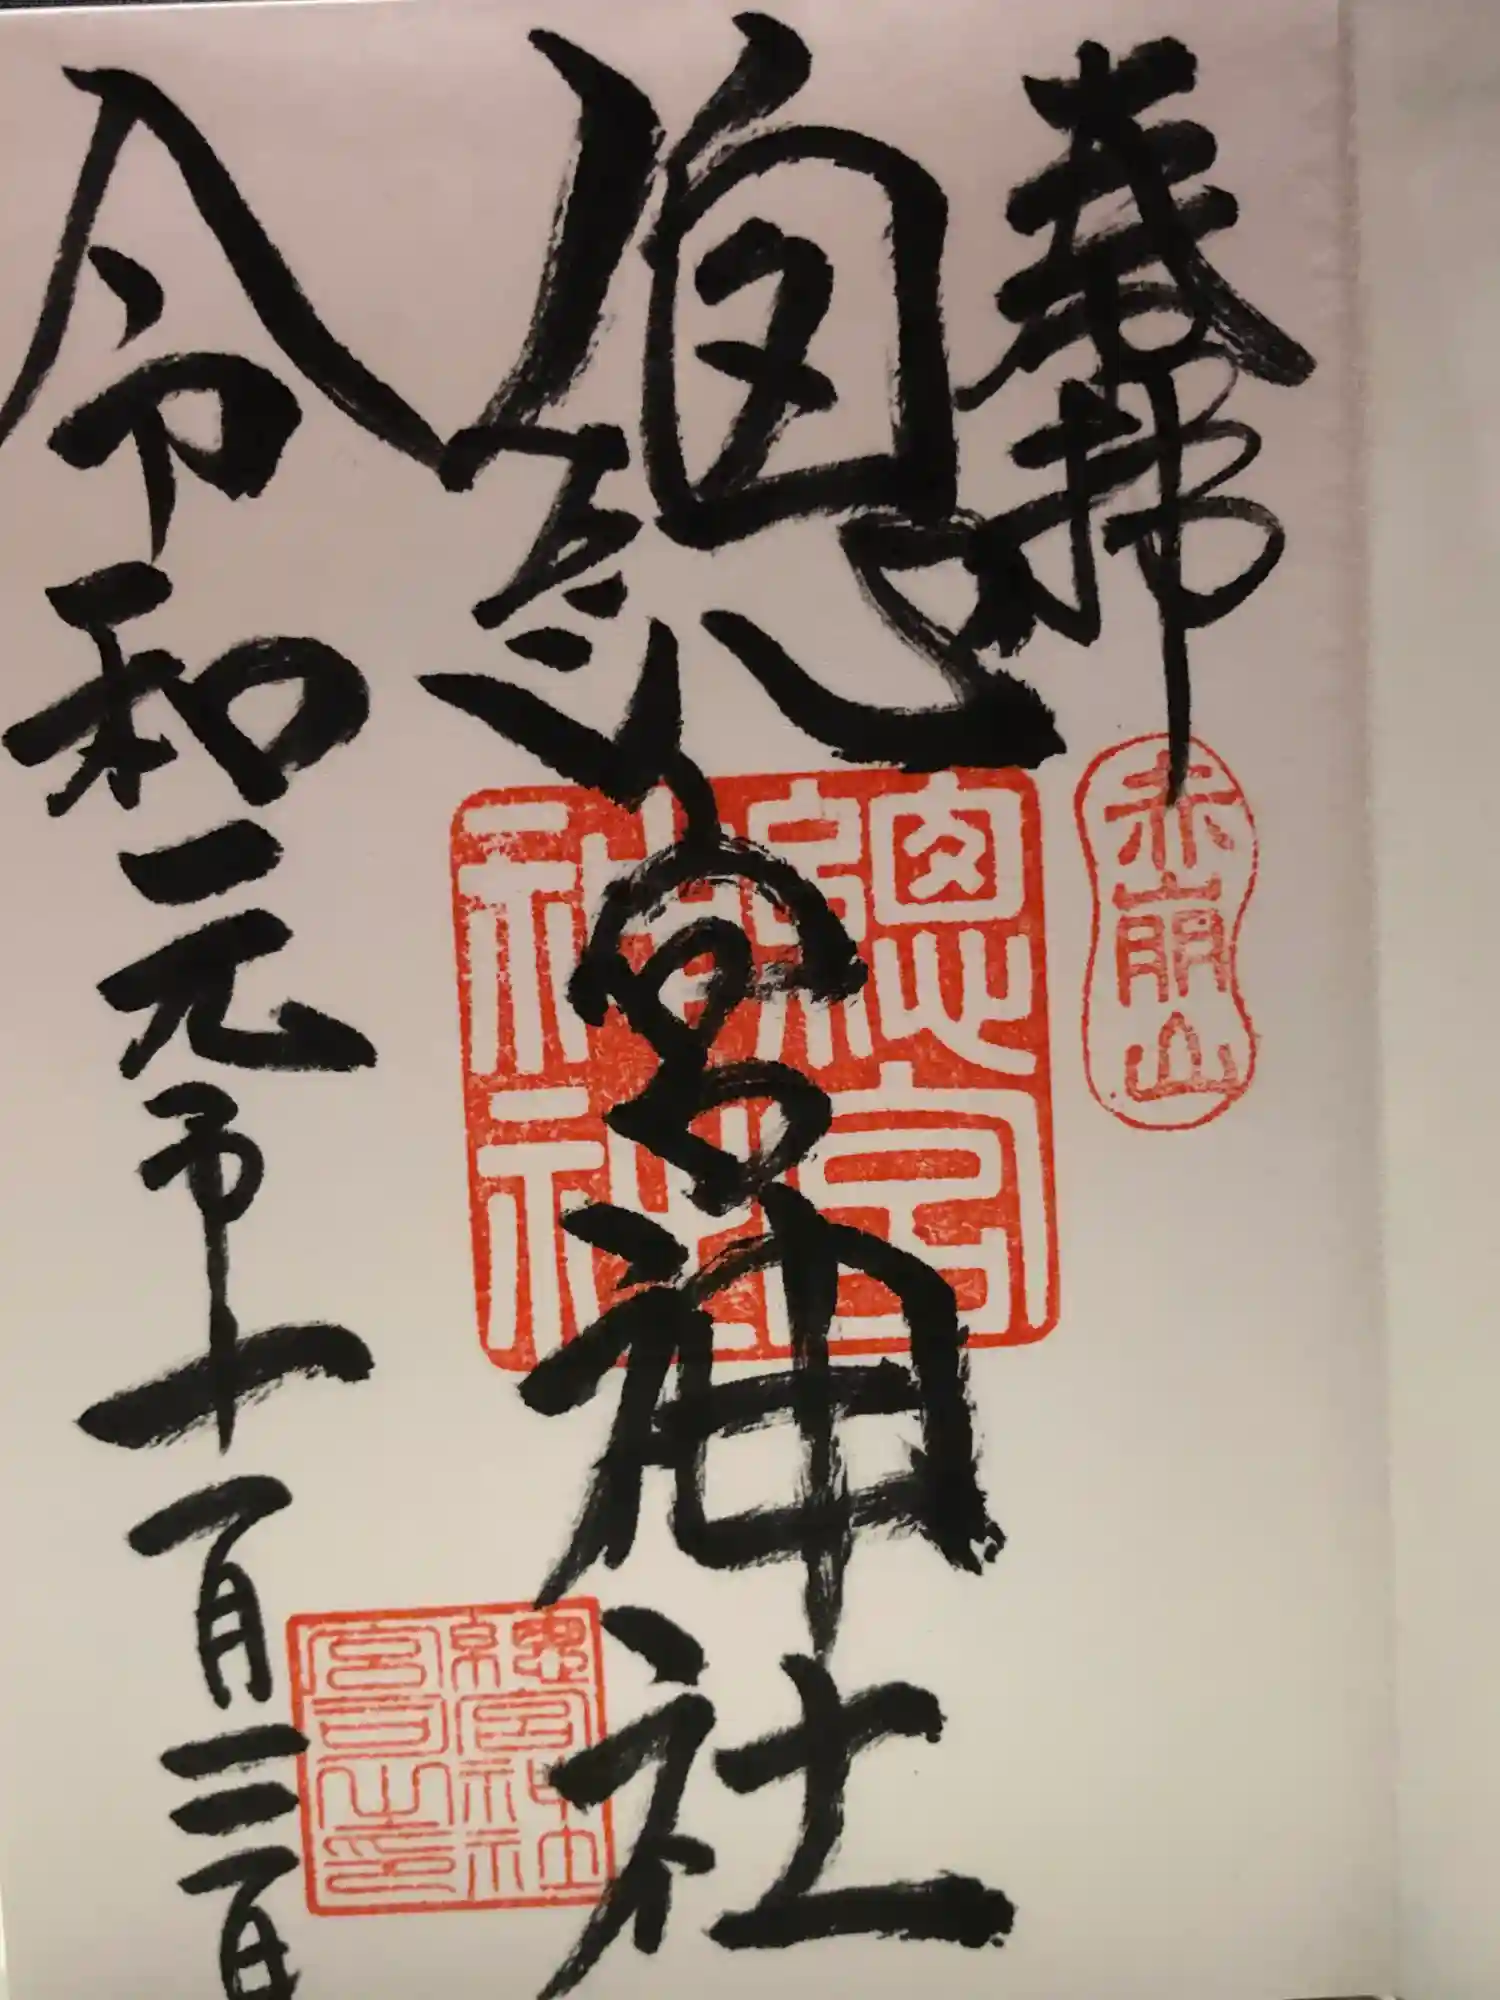 奉拝
赤崩山
總宮神社
總宮神社
總宮神社
宮司之印
令和元年十一月三日